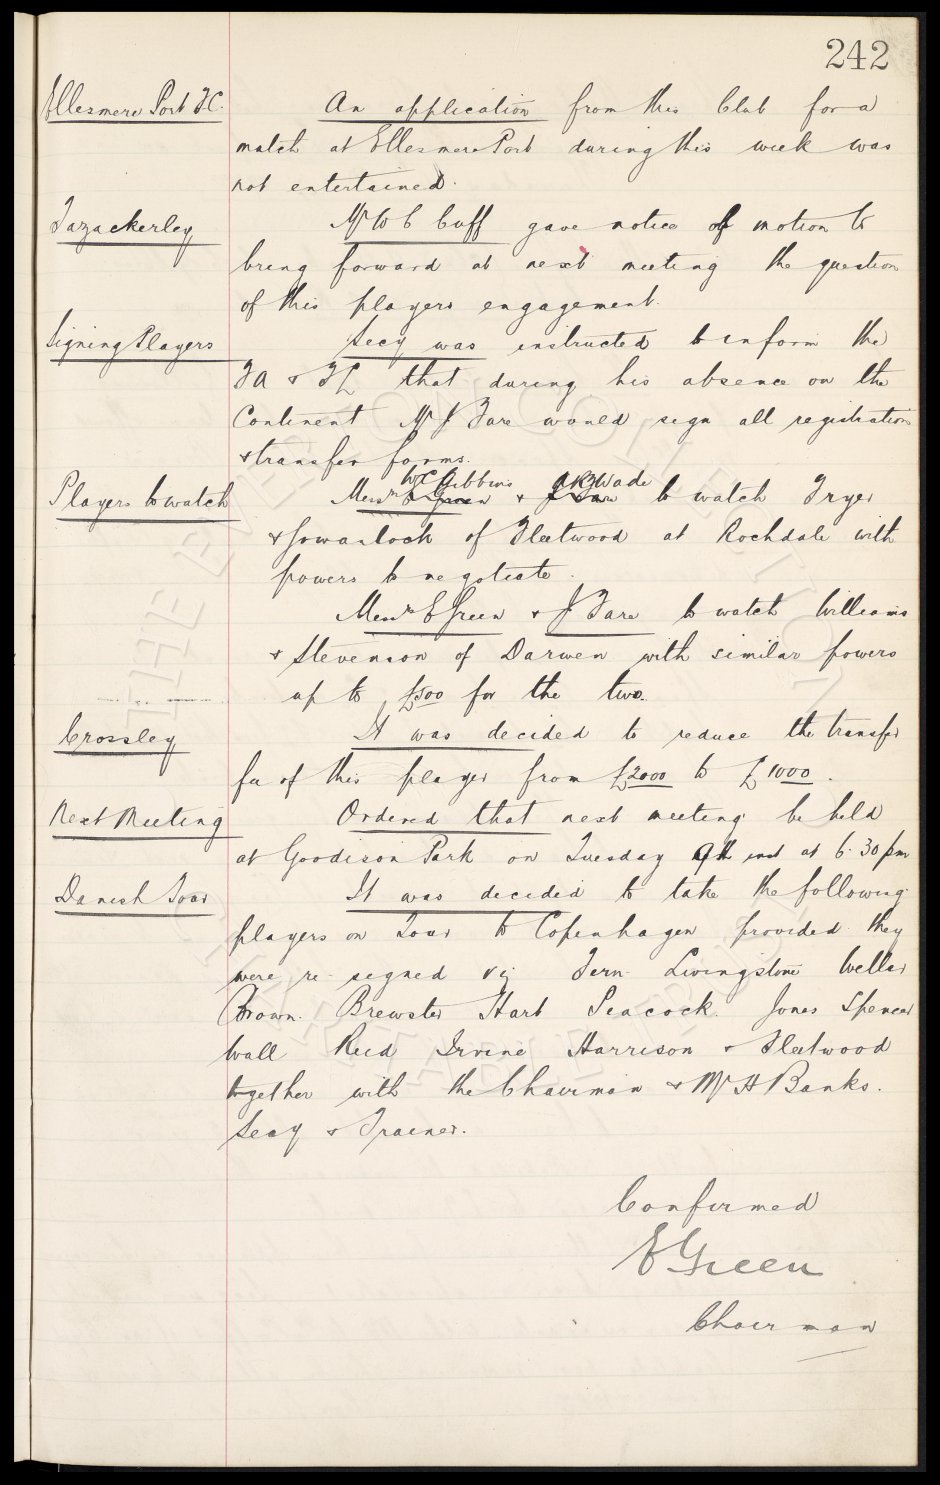 242
Ellesmere Port F.C. An application from this Club for a
match at Ellesmere Port during this week was
not entertained.
Fazackerley Mr W C Cuff gave notice of motion to
bring forward at next meeting the question
of this players engagement.
Signing Players Secy was instructed to inform the
FA & FL that during his absence on the
Continent Mr J Fare would sign all registration
& transfer forms.
W C Gibbins A R Wade
Players to watch Messrs E Green & J Fare to watch Fryer
& Gowanlock of Fleetwood at Rochdale with
powers to negotiate.
Messrs E Green & J Fare to watch Williams
& Stevenson of Darwen with similar powers
up to £500 for the two.
Crossley It was decided to reduce the transfer
fee of this player from £2000 to £1000.
Next Meeting Ordered that next meeting be held
at Goodison Park on Tuesday 9th inst at 6.30 pm
Danish Tour It was decided to take the following
players on Tour to Copenhagen provided they
were re-signed viz Fern Livingstone Weller
Brown. Brewster Hart Peacock. Jones Spencer
Wall Reid Irvine Harrison & Fleetwood
together with the Chairman & Mr H Banks.
Secy & Trainer.
Confirmed
E Green
Chairman
THE EVERTON COLLECTION
CHARITABLE TRUST